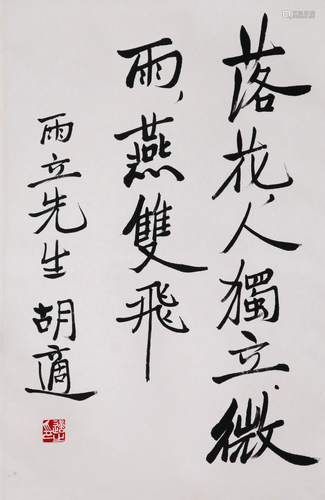 落花,人獨立,微
雨,燕雙飛
雨立先生 胡適